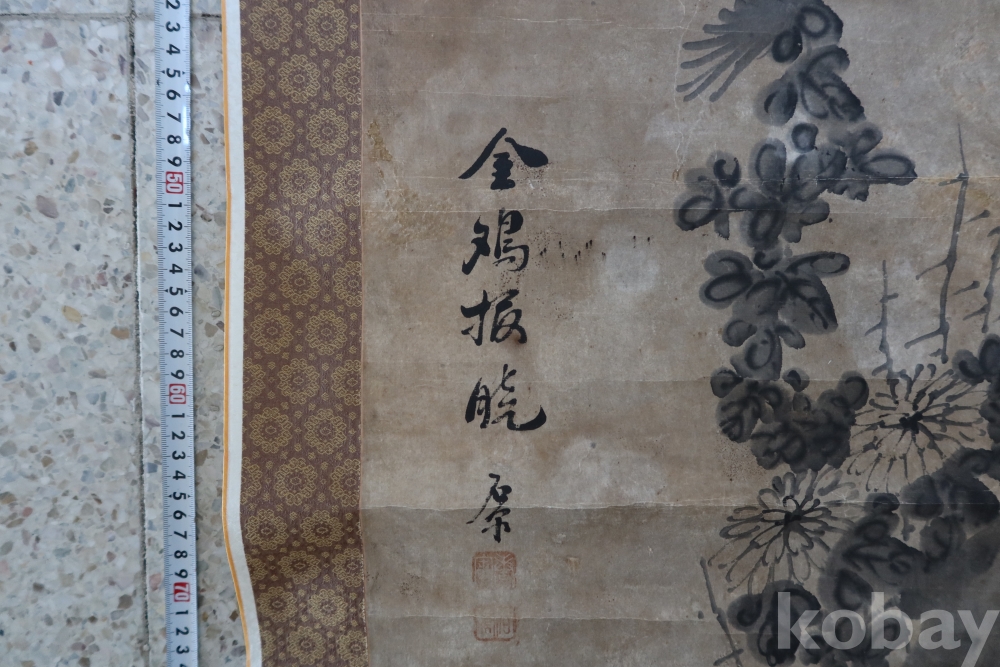 金鷄报曉
2
3
4
5
6
7
8
9
50
1
2
3
4
5
6
7
8
9
60
1
2
3
4
5
6
7
8
9
70
1
2
3
4
kobay